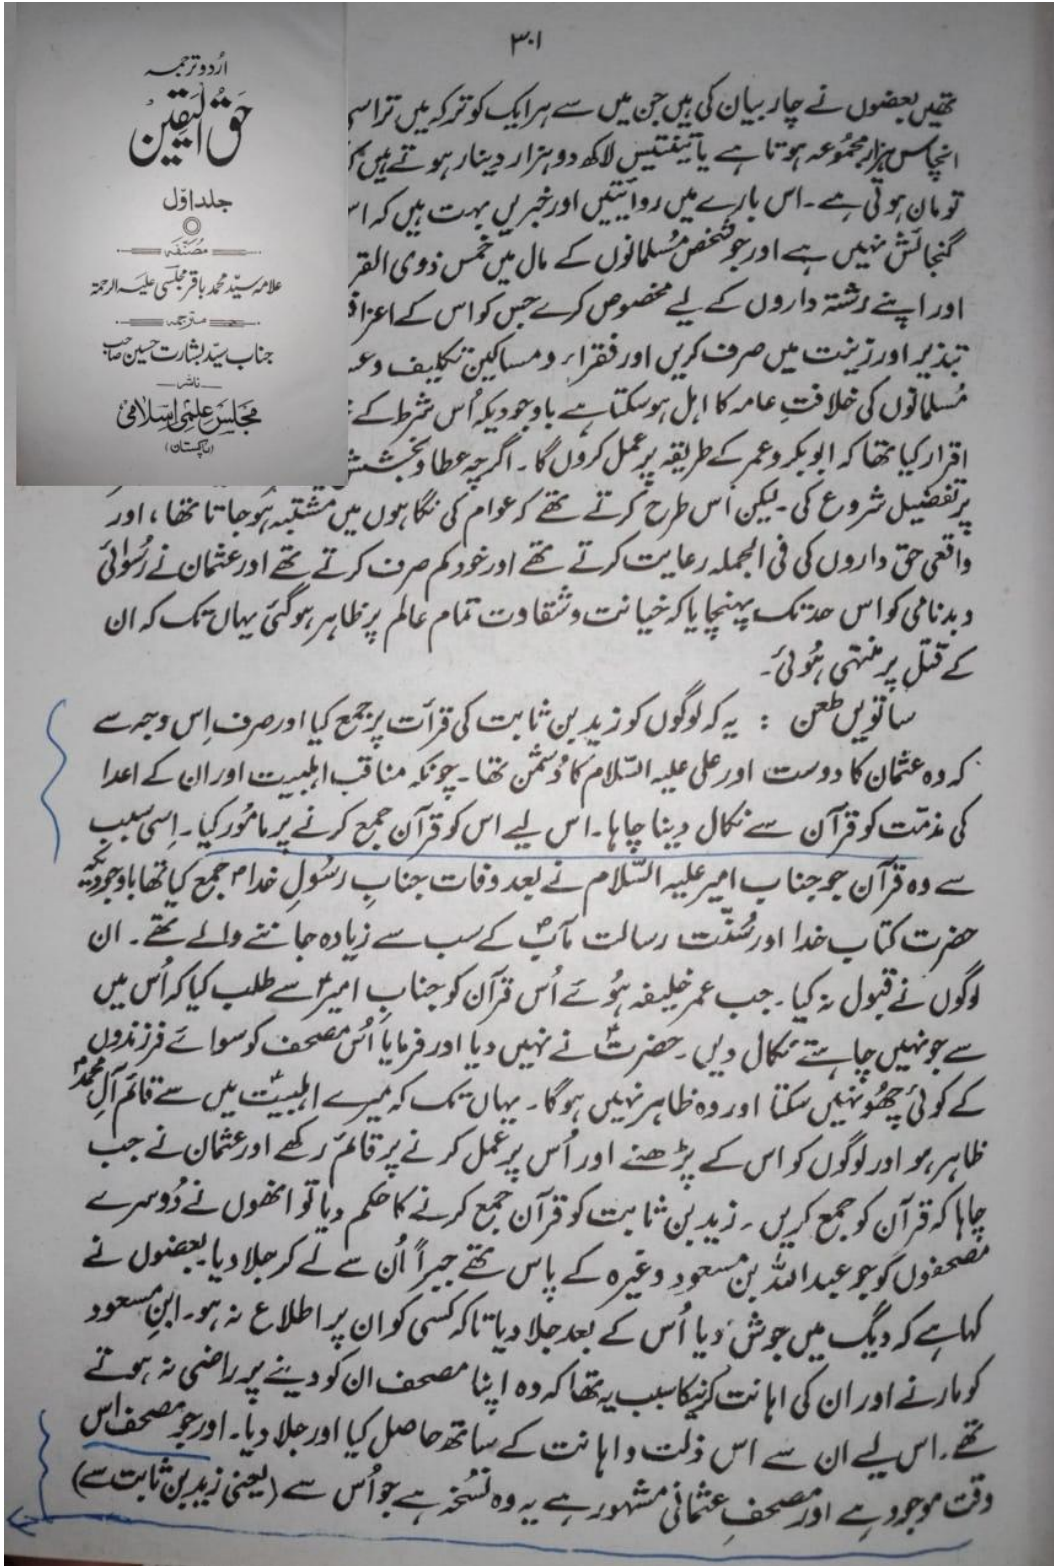 ۳۰۱
اُردو ترجمہ
حق الیقین
جلد اوّل
مُصنّفہ
علامہ سیّد محمد باقر مجلسی علیہ الرحمۃ
مترجمہ
جناب سیّد بشارت حسین صاحب
ناشر
مجلس علمی اسلامی
(پاکستان)
تھیں بعضوں نے چار بیان کی ہیں جن میں سے ہر ایک کو ترکہ میں تراسی
انچاس ہزار مجموعہ ہوتا ہے یا تینتیس لاکھ دو ہزار دینار ہوتے ہیں
تومان ہوتی ہے۔ اس بارے میں روایتیں اور خبریں بہت ہیں کہ
گنجائش نہیں ہے اور جو شخص مُسلمانوں کے مال میں خمس ذوی القر
اور اپنے رشتہ داروں کے لیے مخصوص کرے جس کو اس کے
تبذیر اور زینت میں صرف کریں اور فقراء و مساکین تکلیف و
مُسلمانوں کی خلافتِ عامہ کا اہل ہو سکتا ہے باوجودیکہ اُس شرط کے
اقرار کیا تھا کہ ابوبکر و عمر کے طریقہ پر عمل کروں گا۔ اگرچہ عطا و بخشش
پر تفضیل شروع کی۔ لیکن اس طرح کرتے تھے کہ عوام کی نگاہوں میں مشتبہ ہو جاتا تھا، اور
واقعی حق داروں کی فی الجملہ رعایت کرتے تھے اور خود کم صرف کرتے تھے اور عثمان نے رُسوائی
و بدنامی کو اس حد تک پہنچایا کہ خیانت و شقاوت تمام عالم پر ظاہر ہو گئی یہاں تک کہ ان
کے قتل پر منتہی ہُوئی۔
ساتویں طعن : یہ کہ لوگوں کو زید بن ثابت کی قرأت پر جمع کیا اور صرف اِس وجہ سے
کہ وہ عثمان کا دوست اور علی علیہ السّلام کا دُشمن تھا۔ چونکہ مناقب اہلبیت اور ان کے اعدا
کی مذمّت کو قرآن سے نکال دینا چاہا۔ اس لیے اس کو قرآن جمع کرنے پر مامُور کیا۔ اِسی سبب
سے وہ قرآن جو جناب امیر علیہ السّلام نے بعد وفات جنابِ رسُولِ خدا ﷺ جمع کیا تھا باوجودیکہ
حضرت کتاب خدا اور سُنّت رسالت مآبؐ کے سب سے زیادہ جاننے والے تھے۔ ان
لوگوں نے قبول نہ کیا۔ جب عمر خلیفہ ہُوئے اُس قرآن کو جنابِ امیرؑ سے طلب کیا کہ اُس میں
سے جو نہیں چاہتے نکال دیں۔ حضرتؑ نے نہیں دیا اور فرمایا اُس مصحف کو سوائے فرزندوں
کے کوئی چھُو نہیں سکتا اور وہ ظاہر نہیں ہوگا۔ یہاں تک کہ میرے اہلبیتؑ میں سے قائم آلِ محمدؐ
ظاہر ہو اور لوگوں کو اس کے پڑھنے اور اُس پر عمل کرنے پر قائم رکھے اور عثمان نے جب
چاہا کہ قرآن کو جمع کریں۔ زید بن ثابت کو قرآن جمع کرنے کا حکم دیا تو انھوں نے دُوسرے
مصحفوں کو جو عبداللہ بن مسعود وغیرہ کے پاس تھے جبراً اُن سے لے کر جلا دیا بعضوں نے
کہا ہے کہ دیگ میں جوش دیا اُس کے بعد جلا دیا تاکہ کسی کو ان پر اطلاع نہ ہو۔ ابنِ مسعود
کو مارنے اور ان کی اہانت کرنیکا سبب یہ تھا کہ وہ اپنا مصحف ان کو دینے پر راضی نہ ہوتے
تھے۔ اس لیے ان سے اس ذلت و اہانت کے ساتھ حاصل کیا اور جلا دیا۔ اور جو مصحف اس
وقت موجود ہے اور مصحفِ عثمانی مشہور ہے یہ وہ نسُخہ ہے جو اُس سے (یعنی زید بن ثابت سے)